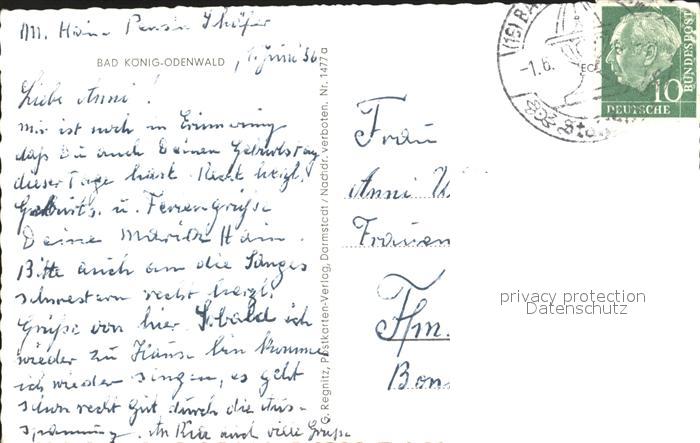 M. Hain Pension Schäfer
BAD KÖNIG-ODENWALD
1. Juni 56
Liebe Anni!
mir ist noch in Erinnerung
daß Du auch Deinen Geburtstag
dieser Tage hast. Recht herzl.
Geburts. u. Feriengrüße
Deine Maria Hain.
Bitte auch an die Sanges
schwestern recht herzl.
Grüße von hier. Sobald ich
wieder zu Hause bin komme
ich wieder singen, es geht
schon recht gut durch die Aus-
spannung. und viele Grüße
G. Regnitz, Postkarten-Verlag, Darmstadt / Nachdr. verboten. Nr. 1477a
(16) BA
-1.6.
10
DEUTSCHE
BUNDESPOST
Frau
Anni
Frauen
Ffm.
privacy protection
Datenschutz